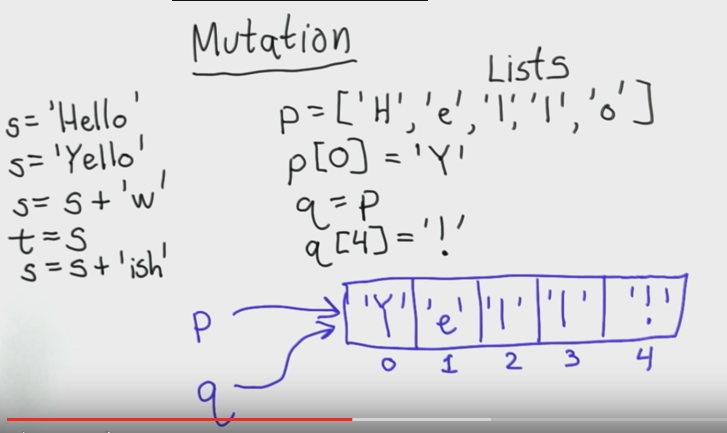 Mutation
s='Hello'
s='Yello'
s=s+'w'
t=s
s=s+'ish'
Lists
p=['H','e','l','l','o']
p[0]='Y'
q=p
q[4]='!'
p
q
'Y' 'e' 'l' 'l' '!'
0 1 2 3 4